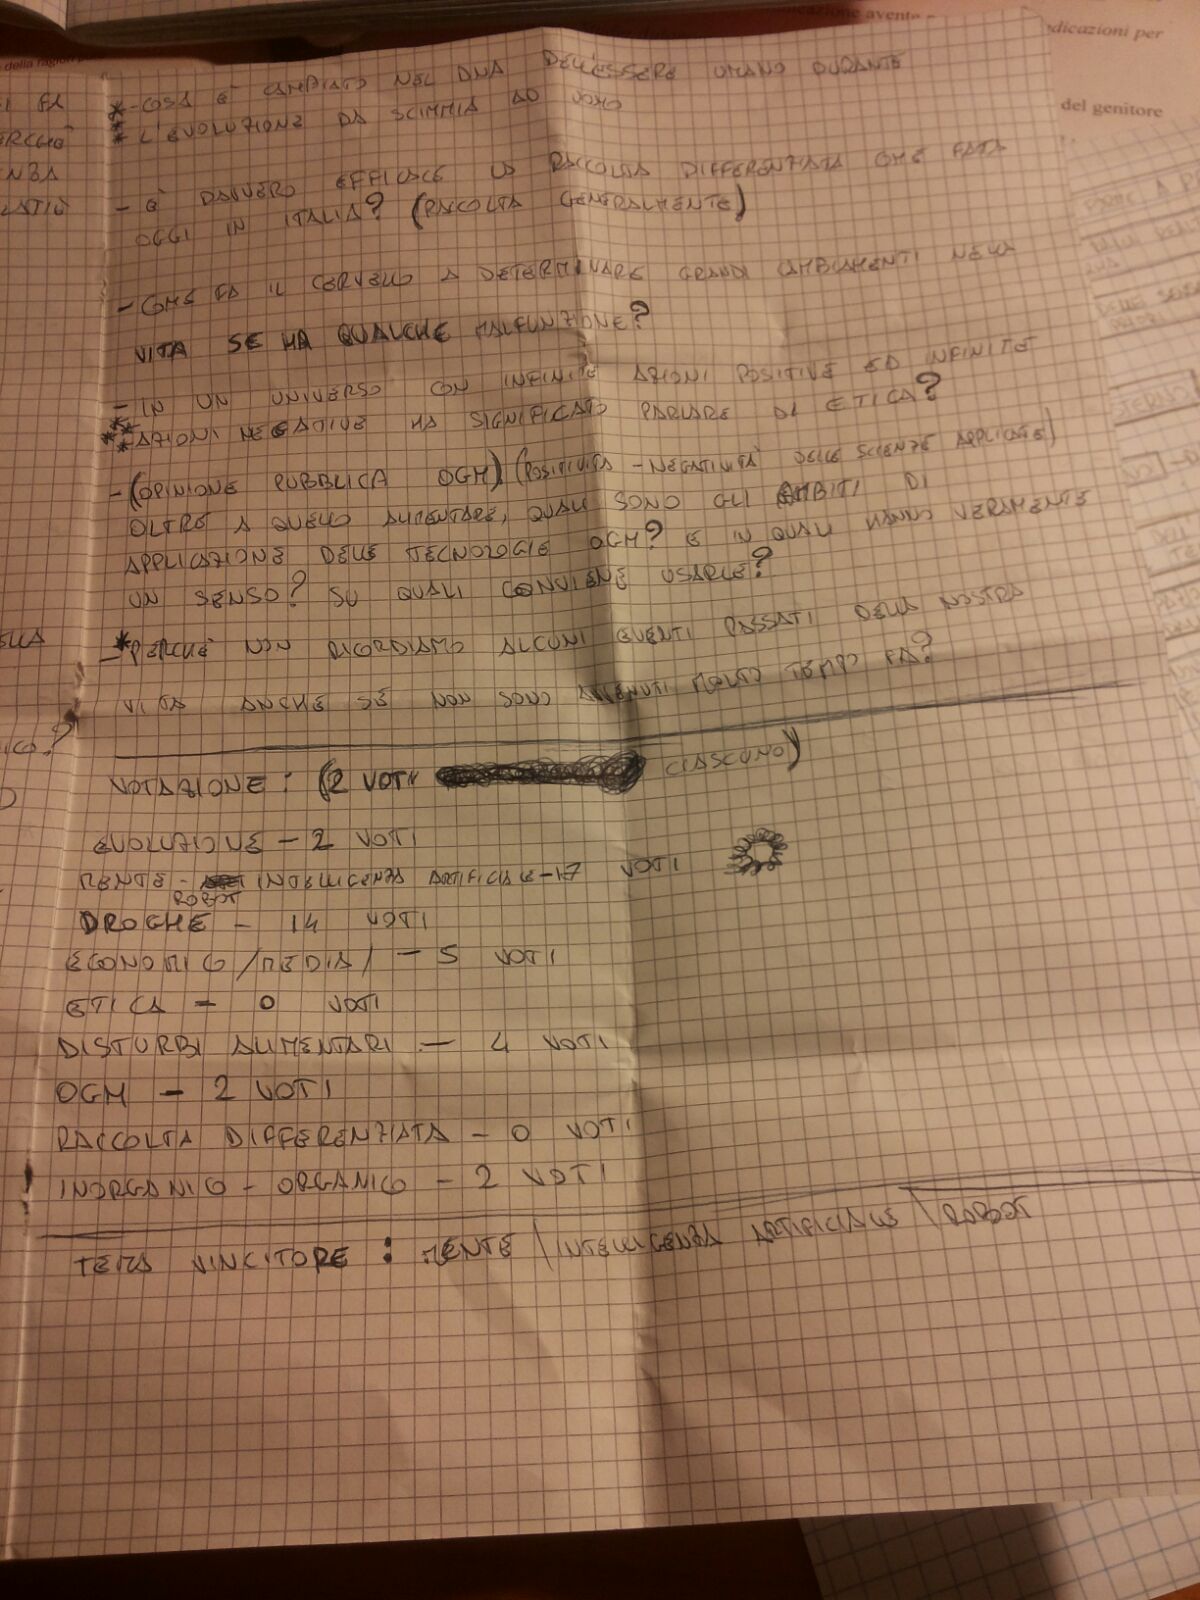 della ragion
icazione avente
dicazioni per
del genitore
* - COSA È CAMBIATO NEL DNA DELL'ESSERE UMANO DURANTE
* L'EVOLUZIONE DA SCIMMIA AD UOMO
- È DAVVERO EFFICACE LA RACCOLTA DIFFERENZIATA COME FATA
OGGI IN ITALIA? (RACCOLTA GENERALMENTE)
- COME FA IL CERVELLO A DETERMINARE GRANDI CAMBIAMENTI NELLA
VITA SE HA QUALCHE MALFUNZIONE?
- IN UN UNIVERSO CON INFINITE AZIONI POSITIVE ED INFINITE
*** AZIONI NEGATIVE HA SIGNIFICATO PARLARE DI ETICA?
- (OPINIONE PUBBLICA OGM) (POSITIVITÀ - NEGATIVITÀ DELLE SCIENZE APPLICATE)
OLTRE A QUELLO ALIMENTARE, QUALI SONO GLI AMBITI DI
APPLICAZIONE DELLE TECNOLOGIE OGM? E IN QUALI HANNO VERAMENTE
UN SENSO? SU QUALI CONVIENE USARLE?
- * PERCHÈ NON RICORDIAMO ALCUNI EVENTI PASSATI DELLA NOSTRA
VITA ANCHE SE NON SONO AVVENUTI MOLTO TEMPO FA?
VOTAZIONE: (2 VOTI CIASCUNO)
EVOLUZIONE - 2 VOTI
MENTE - INTELLIGENZA ARTIFICIALE - 17 VOTI
ROBOT
DROGHE - 14 VOTI
ECONOMICO/MEDIA/ - 5 VOTI
ETICA - 0 VOTI
DISTURBI ALIMENTARI - 4 VOTI
OGM - 2 VOTI
RACCOLTA DIFFERENZIATA - 0 VOTI
INORGANICO - ORGANICO - 2 VOTI
TEMA VINCITORE: MENTE \ INTELLIGENZA ARTIFICIALE \ ROBOT